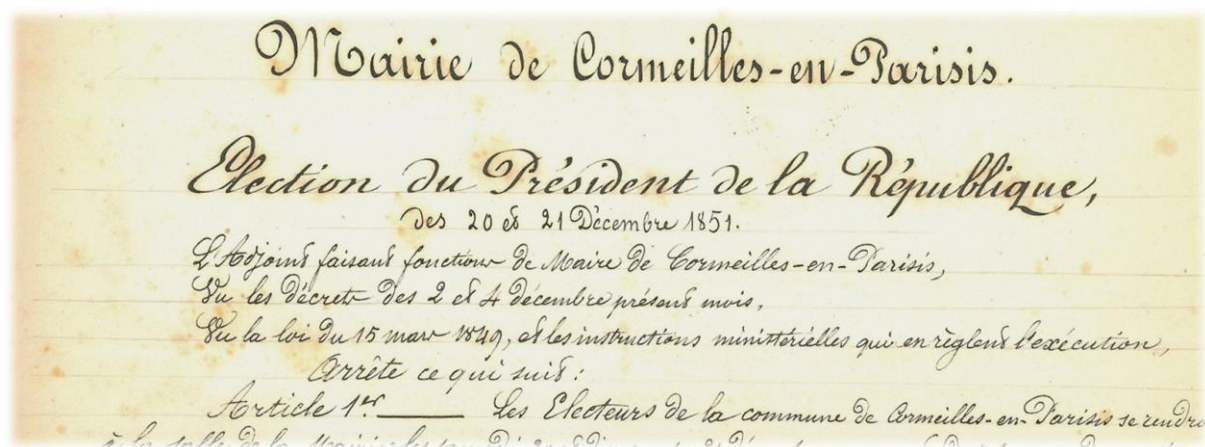 Mairie de Cormeilles-en-Parisis.
Election du Président de la République,
des 20 et 21 Décembre 1851.
L'Adjoint faisant fonctions de Maire de Cormeilles-en-Parisis,
Vu les décrets des 2 et 4 décembre présent mois,
Vu la loi du 15 mars 1849, et les instructions ministérielles qui en règlent l'exécution,
Arrête ce qui suit :
Article 1er ____ Les Electeurs de la commune de Cormeilles-en-Parisis se rendro
à la salle de la Mairie les samedi 20 et dimanche 21 Décembre